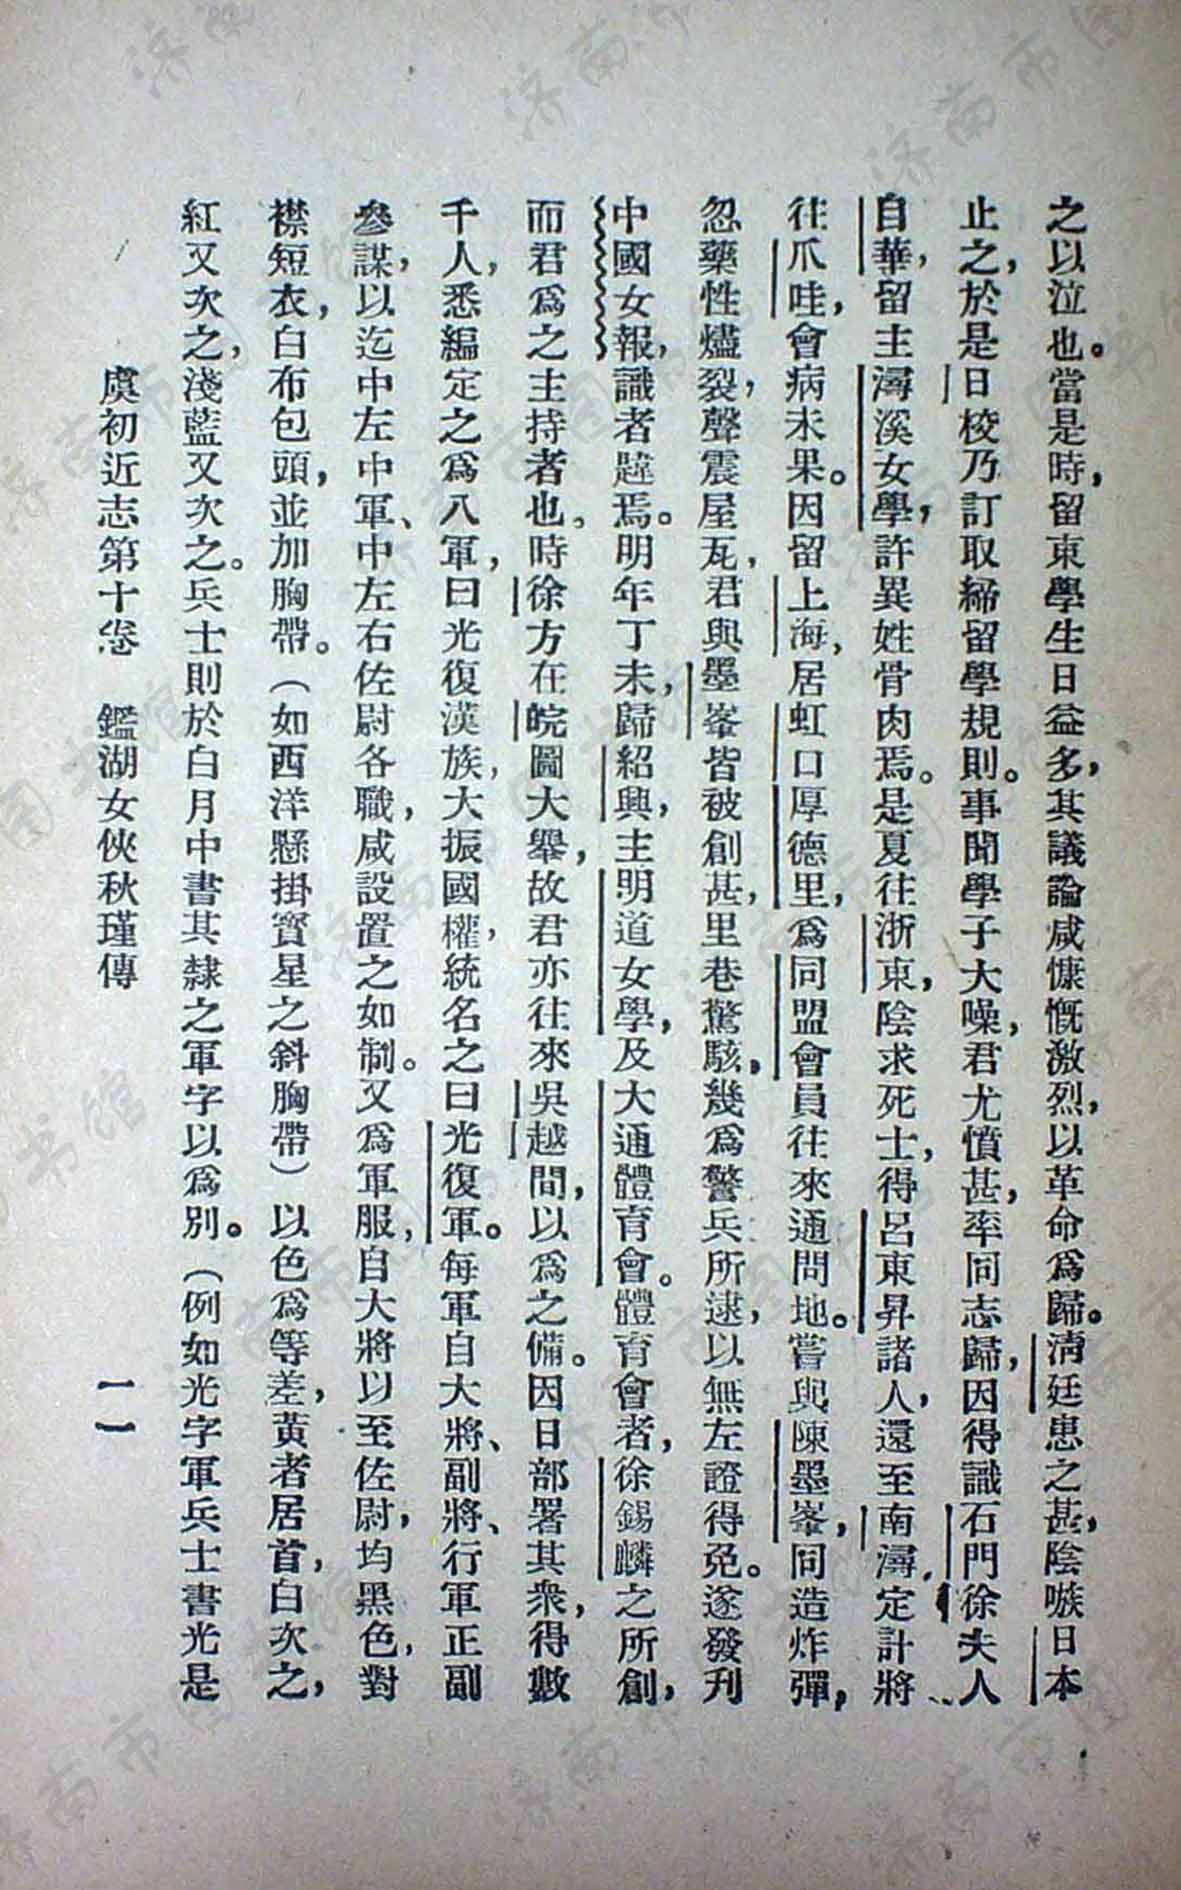 之以泣也。當是時，留東學生日益多，其議論咸慷慨激烈，以革命爲歸。淸廷患之甚，陰嗾日本
止之，於是日校乃訂取締留學規則。事聞學子大噪，君尤憤甚，率同志歸，因得識石門徐夫人
自華，留主潯溪女學，許異姓骨肉焉。是夏往浙東，陰求死士，得呂東昇諸人，還至南潯，定計將
往爪哇，會病未果。因留上海，居虹口厚德里，爲同盟會員往來通問地。嘗與陳墨峯，同造炸彈，
忽藥性爐裂，聲震屋瓦，君與墨峯皆被創甚，里巷驚駭，幾爲警兵所逮，以無左證得免。遂發刋
中國女報，識者韙焉。明年丁未，歸紹興，主明道女學，及大通體育會。體育會者，徐錫麟之所創，
而君爲之主持者也。時徐方在皖圖大舉，故君亦往來吳越間，以爲之備。因日部署其衆，得數
千人，悉編定之爲八軍，曰光復漢族，大振國權，統名之曰光復軍。每軍自大將、副將、行軍正副
參謀，以迄中左中軍、中左右佐尉各職，咸設置之如制。又爲軍服，自大將以至佐尉，均黑色，對
襟短衣，白布包頭，並加胸帶。（如西洋懸掛寳星之斜胸帶）以色爲等差，黃者居首，白次之，
紅又次之，淺藍又次之。兵士則於白月中書其隸之軍字以爲別。（例如光字軍兵士書光是
虞初近志第十卷 鑑湖女俠秋瑾傳 一一
济南市图书馆